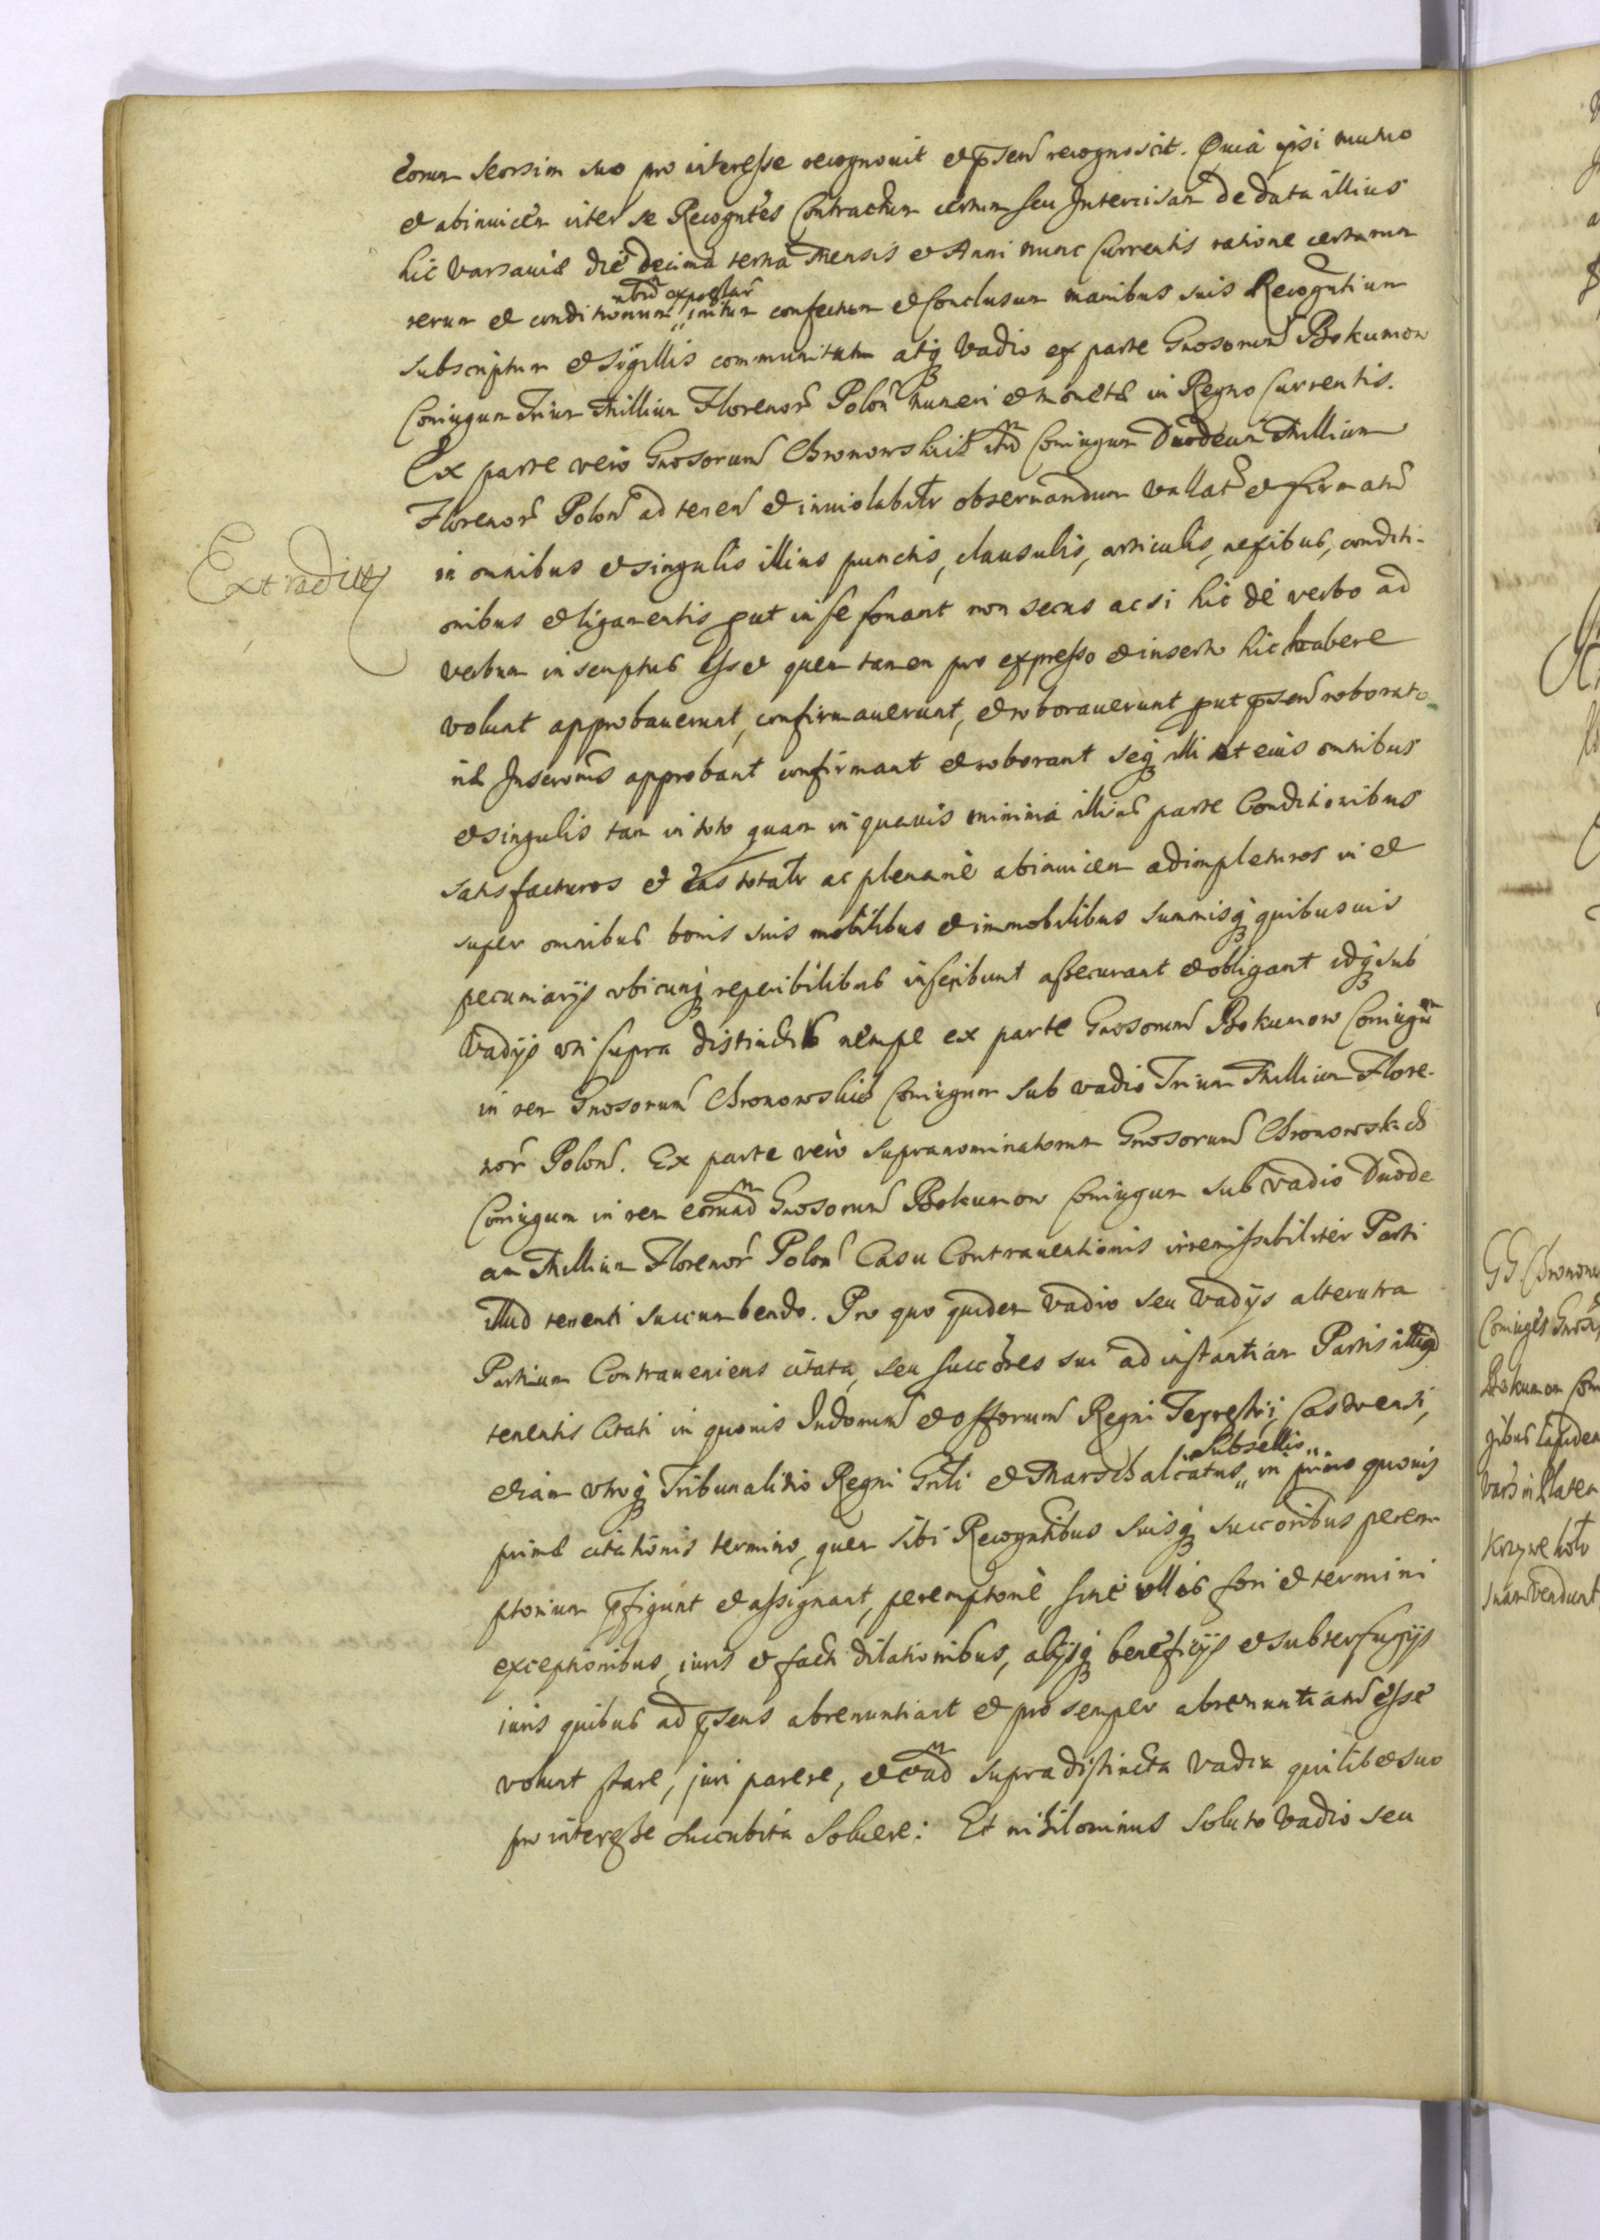 eorum seorsim suo pro interesse recognovit et p̄sen recognoscit. Quià ipsi mutuo
et abinuicem inter se Recogntes Contractum certum seu Intercisam de data illius
hic Varsauiæ die decima tertia Mensis et Anni nunc Currentis ratione certarum
ibid expressar
rerum et conditionum initum confectum et Conclusum manibus suis Recogntium
subscriptum et Sigillis communitum atq; Vadio ex parte Gnosorum Bokumow
Coniugum Trium Millium Florenor Polon numeri et monetæ in Regno Currentis.
Ex parte verò Gnosorum Chronowskich itd Coniugum Duodecim Millium
Florenor Polon ad tenen et inuiolabilr obseruandum vallat et firmatum
Extradit
in omnibus et singulis illius punctis, clausulis, articulis, nexibus, conditi-
onibus et ligamentis put in se sonant non secus ac si hic de verbo ad
verbum inscriptus esset quem tamen pro expresso et inserto hic habere
volunt approbauerunt, confirmauerunt, et roborauerunt put p̄sen roborato
riæ Inscrom̄s approbant confirmant et roborant seq; illi et eius omnibus
et singulis tam in toto quam in quauis minima illius parte Conditionibus
satisfacturos et eas totalr ac plenariè abinuicem adimpleturos in et
super omnibus bonis suis mobilibus et immobilibus summisq; quibusuis
pecuniarijs vbicunq; reperibilibus inscribunt assecurant et obligant idq; sub
Vadijs vti supra distinctis nempe ex parte Gnosorum Bokumow Coniugum
in rem Gnosorum Chronowskich Coniugum sub vadio Trium Millium Flore-
nor Polon. Ex parte verò supranominatorum Gnosorum Chronowskich
Coniugum in rem eorumd Gnosorum Bokumow Coniugum sub Vadio Duode
cim Millium Florenor Polon Casu Contrauentionis irremissibiliter Parti
illud tenenti succumbendo. Pro quo quidem Vadio seu Vadijs alterutra
Partium Contraueniens citata, seu succōres sui ad instantiam Partis illud
tenentis Citati in quouis Iudorum et offorum Regni Terrestri, Castrensi,
Subsellio
etiam vtroq; Tribunalitio Regni Gnli et Marschalcatus in primo quouis
primæ citationis termino, quem sibi Recogntibus suisq; succoribus perem
ptorium p̄figunt et assignant, peremptoriè, sine vllis fori et termini
exceptionibus, iuris et facti dilationibus, alijsq; beneficijs et subterfugijs
iuris quibus ad p̄sens abrenuntiant et pro semper abrenuntiatum esse
volunt stare, juri parere, et ead supra distincta Vadia quilibet suo
pro interesse succubita Soluere: Et nihilominus soluto Vadio seu
GG. Chronow
Coniuges Gnos
Bokumom Con
gibus lapidem
Vars in Platea
Krzywe koło
suam vendunt